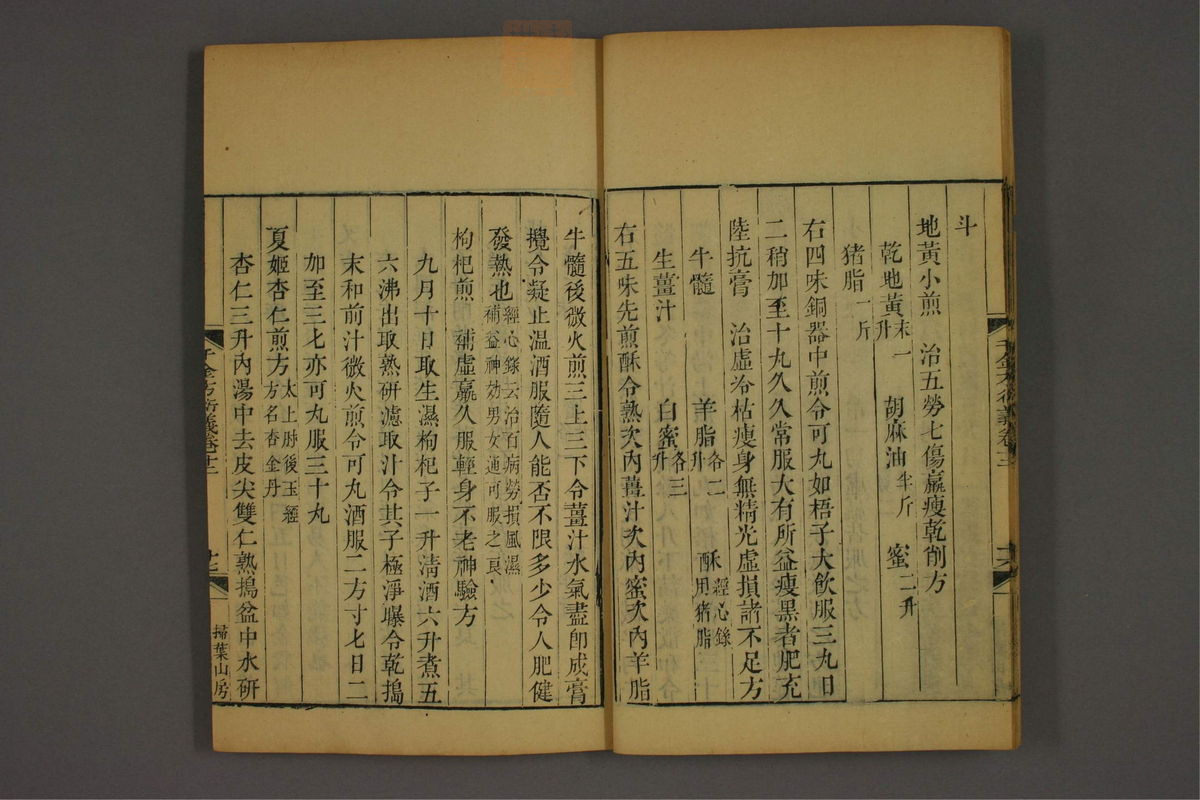 斗
地黃小煎　治五勞七傷羸瘦乾削方
乾地黃末一升　胡麻油半斤　蜜二升
猪脂一斤
右四味銅器中煎令可丸如梧子大飲服三丸日
二稍加至十丸久久常服大有所益瘦黑者肥充
陸抗膏　治虛冷枯瘦身無精光虛損諸不足方
牛髓　羊脂各二升　酥經心錄用猪脂
生薑汁　白蜜各三升
右五味先煎酥令熟次內薑汁次內蜜次內羊脂
牛髓後微火煎三上三下令薑汁水氣盡卽成膏
攪令凝止温酒服隨人能否不限多少令人肥健
發熱也經心錄云治百病勞損風濕補益神効男女通可服之良
枸杞煎　補虛羸久服輕身不老神驗方
九月十日取生濕枸杞子一升淸酒六升煮五
六沸出取熟研濾取汁令其子極淨曝令乾搗
末和前汁微火煎令可丸酒服二方寸七日二
加至三七亦可丸服三十丸
夏姬杏仁煎方太上肘後玉經方名杏金丹
杏仁三升內湯中去皮尖雙仁熟搗盆中水研
千金方衍義卷十二
掃葉山房